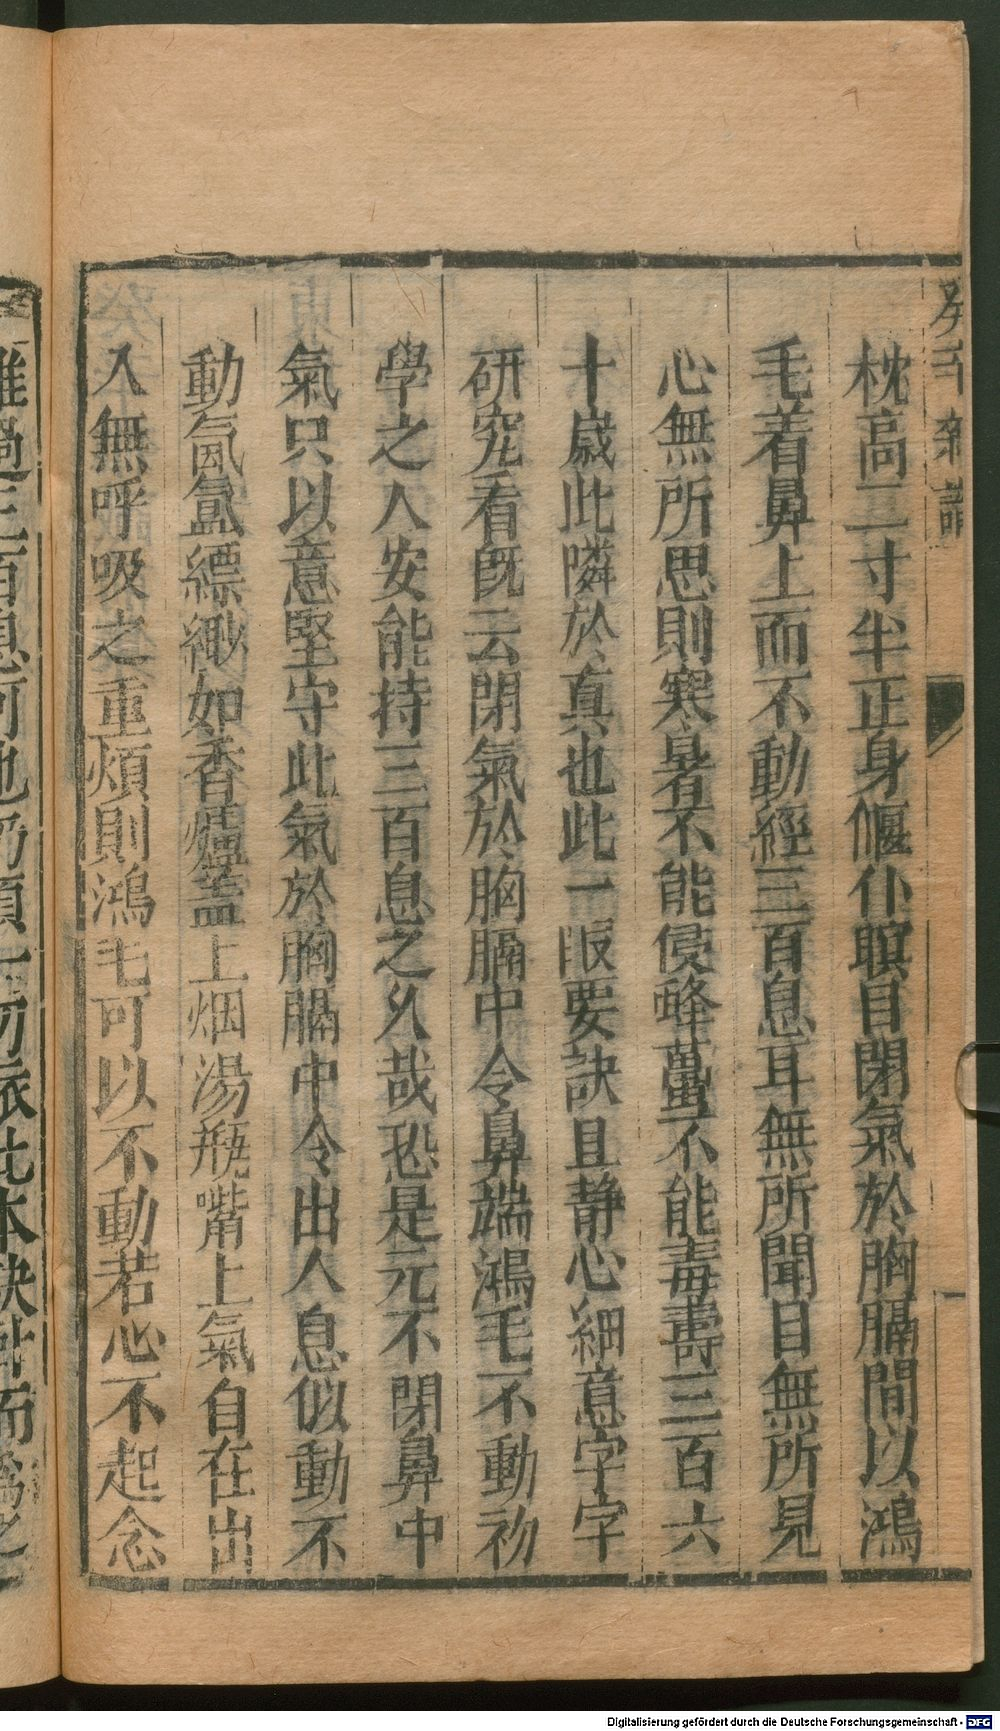 枕高二寸半正身偃仆瞑目閉氣於胸膈間以鴻
毛着鼻上而不動經三百息耳無所聞目無所見
心無所思則寒暑不能侵蜂蠆不能毒壽三百六
十歲此隣於真也此一段要訣且静心細意字字
研究看旣云閉氣於胸膈中令鼻端鴻毛不動初
學之人安能持三百息之久哉恐是元不閉鼻中
氣只以意堅守此氣於胸膈中令出入息似動不
動氤氳縹緲如香爐蓋上烟湯瓶嘴上氣自在出
入無呼吸之重煩則鴻毛可以不動若心不起念
雖過三百息可也仍須一切依此本訣卧而爲之
Digitalisierung gefördert durch die Deutsche Forschungsgemeinschaft - DFG